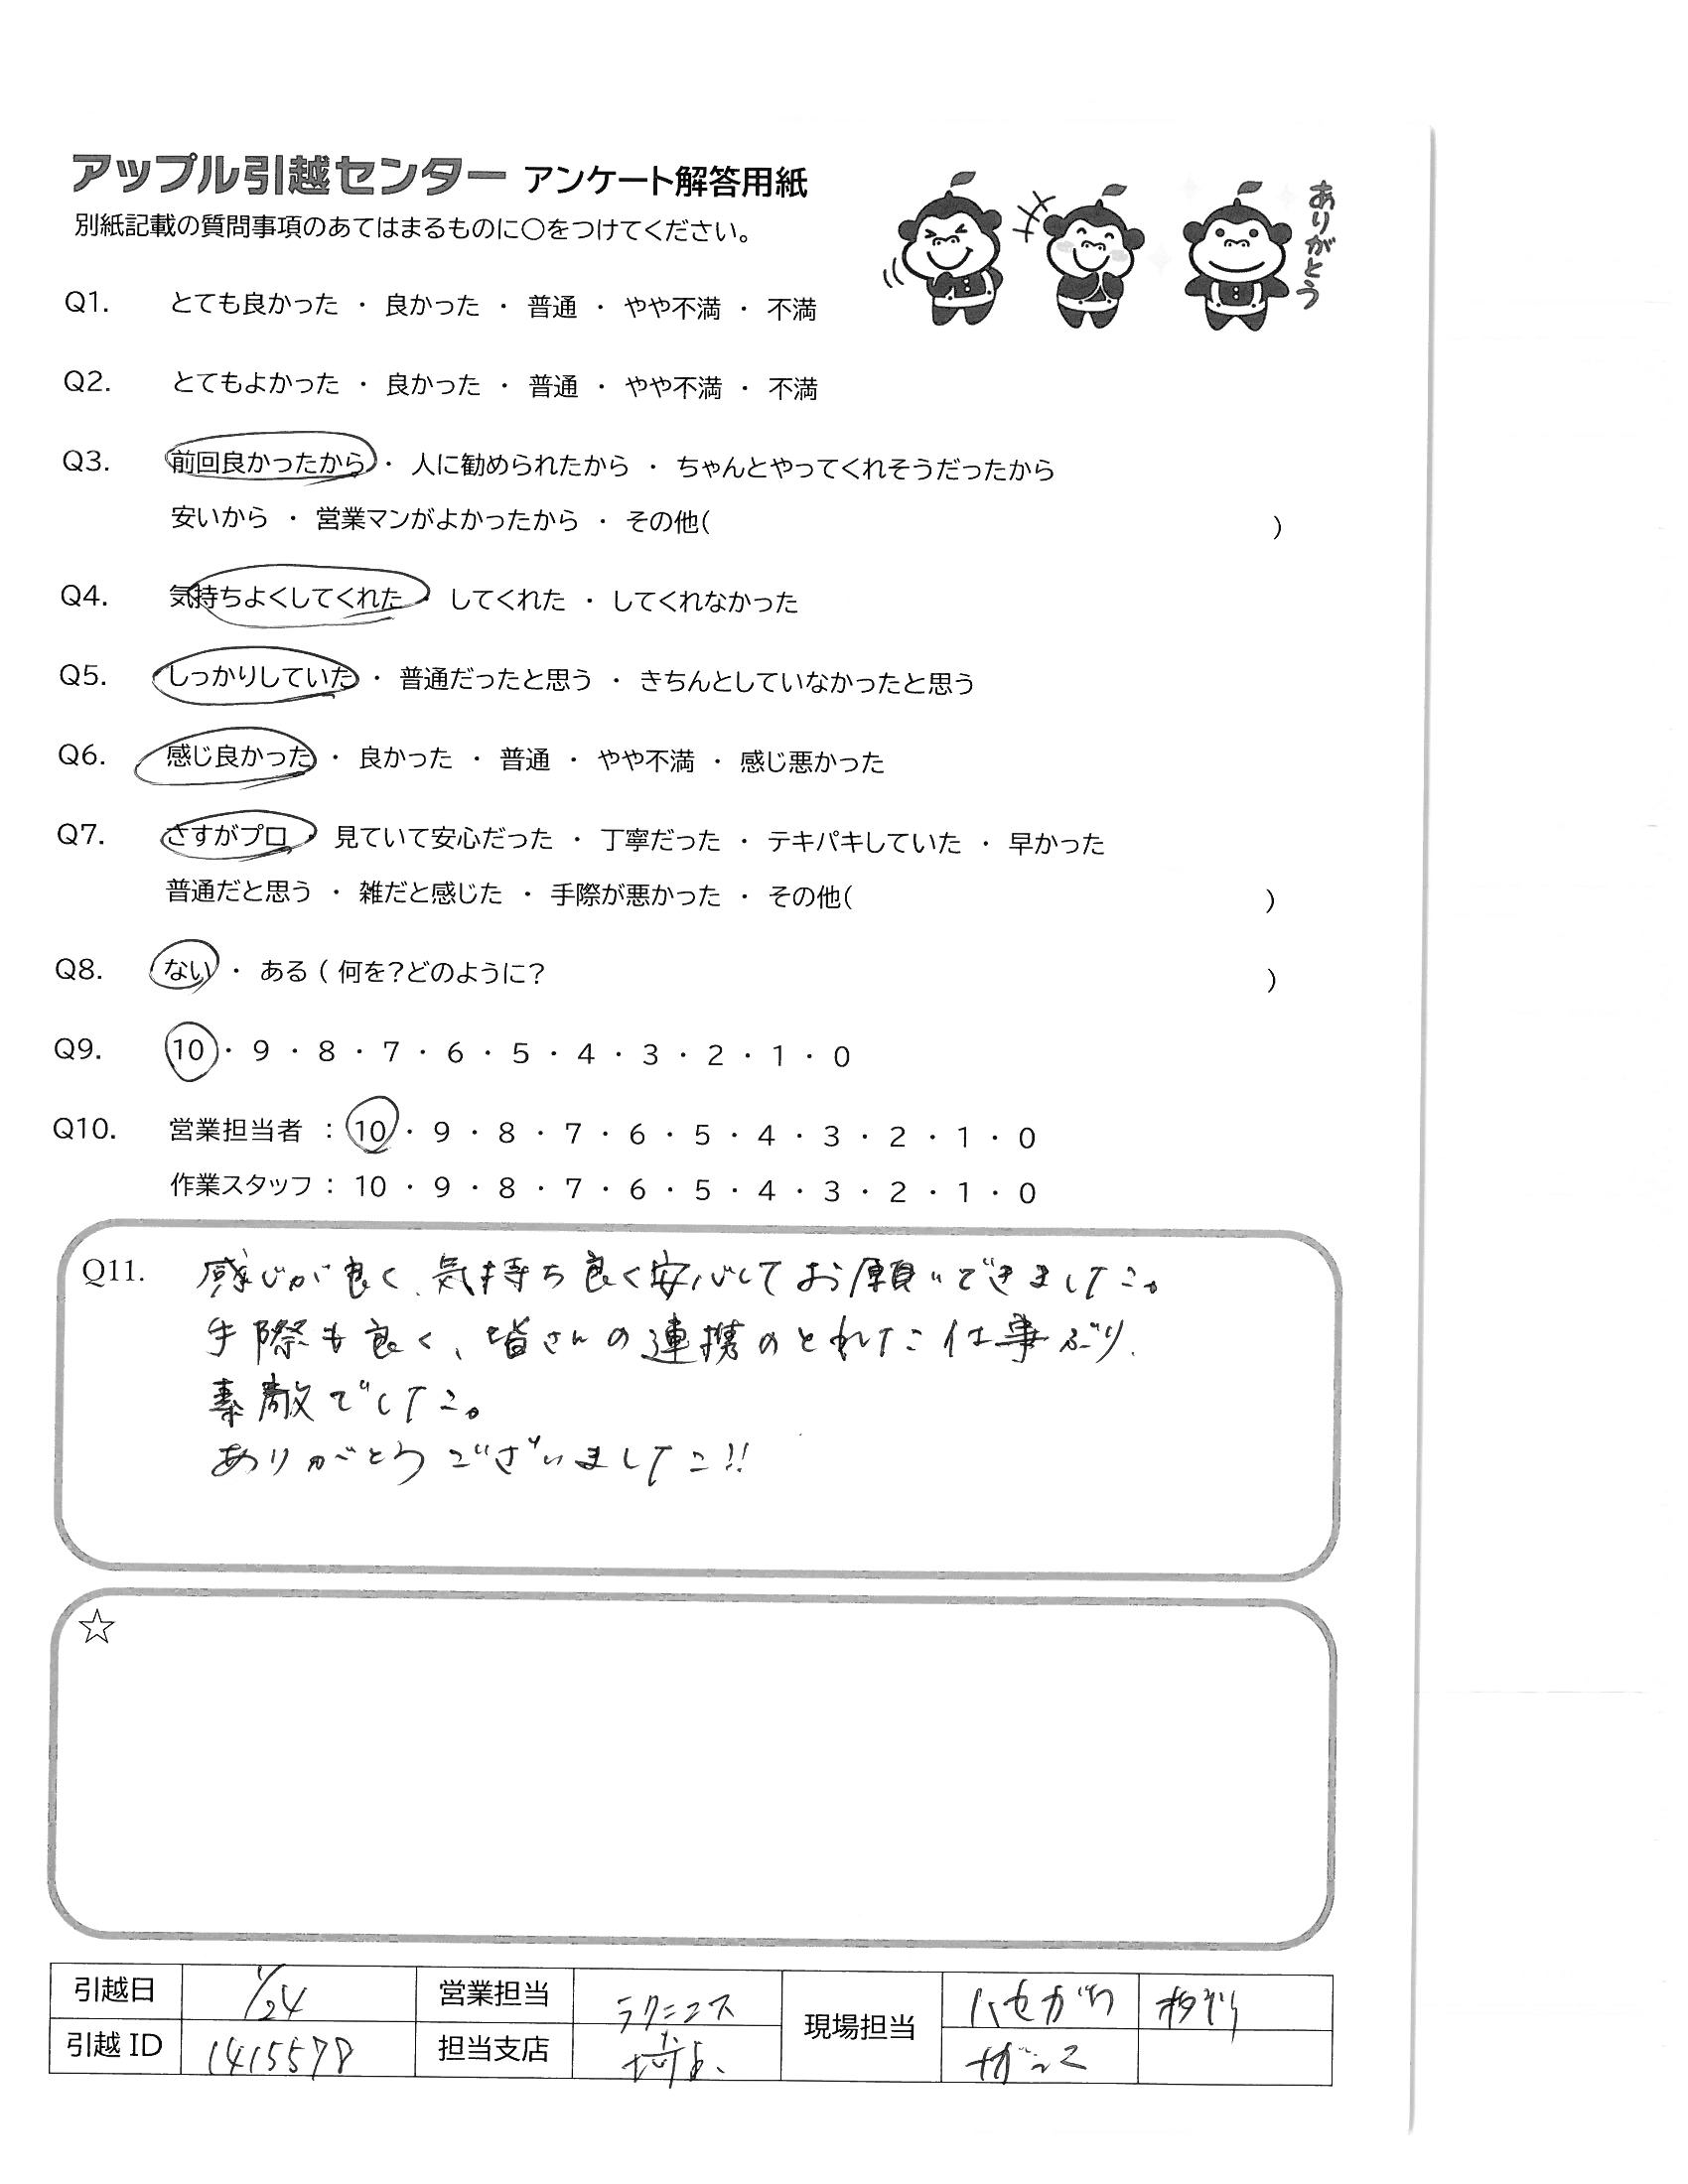 アップル引越センター アンケート解答用紙
別紙記載の質問事項のあてはまるものに○をつけてください。
ありがとう
Q1. とても良かった ・ 良かった ・ 普通 ・ やや不満 ・ 不満
Q2. とてもよかった ・ 良かった ・ 普通 ・ やや不満 ・ 不満
Q3. 前回良かったから ・ 人に勧められたから ・ ちゃんとやってくれそうだったから
安いから ・ 営業マンがよかったから ・ その他( )
Q4. 気持ちよくしてくれた ・ してくれた ・ してくれなかった
Q5. しっかりしていた ・ 普通だったと思う ・ きちんとしていなかったと思う
Q6. 感じ良かった ・ 良かった ・ 普通 ・ やや不満 ・ 感じ悪かった
Q7. さすがプロ ・ 見ていて安心だった ・ 丁寧だった ・ テキパキしていた ・ 早かった
普通だと思う ・ 雑だと感じた ・ 手際が悪かった ・ その他( )
Q8. ない ・ ある ( 何を?どのように? )
Q9. 10 ・ 9 ・ 8 ・ 7 ・ 6 ・ 5 ・ 4 ・ 3 ・ 2 ・ 1 ・ 0
Q10. 営業担当者 : 10 ・ 9 ・ 8 ・ 7 ・ 6 ・ 5 ・ 4 ・ 3 ・ 2 ・ 1 ・ 0
作業スタッフ : 10 ・ 9 ・ 8 ・ 7 ・ 6 ・ 5 ・ 4 ・ 3 ・ 2 ・ 1 ・ 0
Q11. 感じが良く、気持ち良く安心してお願いできました。
手際も良く、皆さんの連携のとれた仕事ぶり、
素敵でした。
ありがとうございました!!
☆
引越日 1/24 営業担当 現場担当 ハセガワ
引越 ID 1415578 担当支店